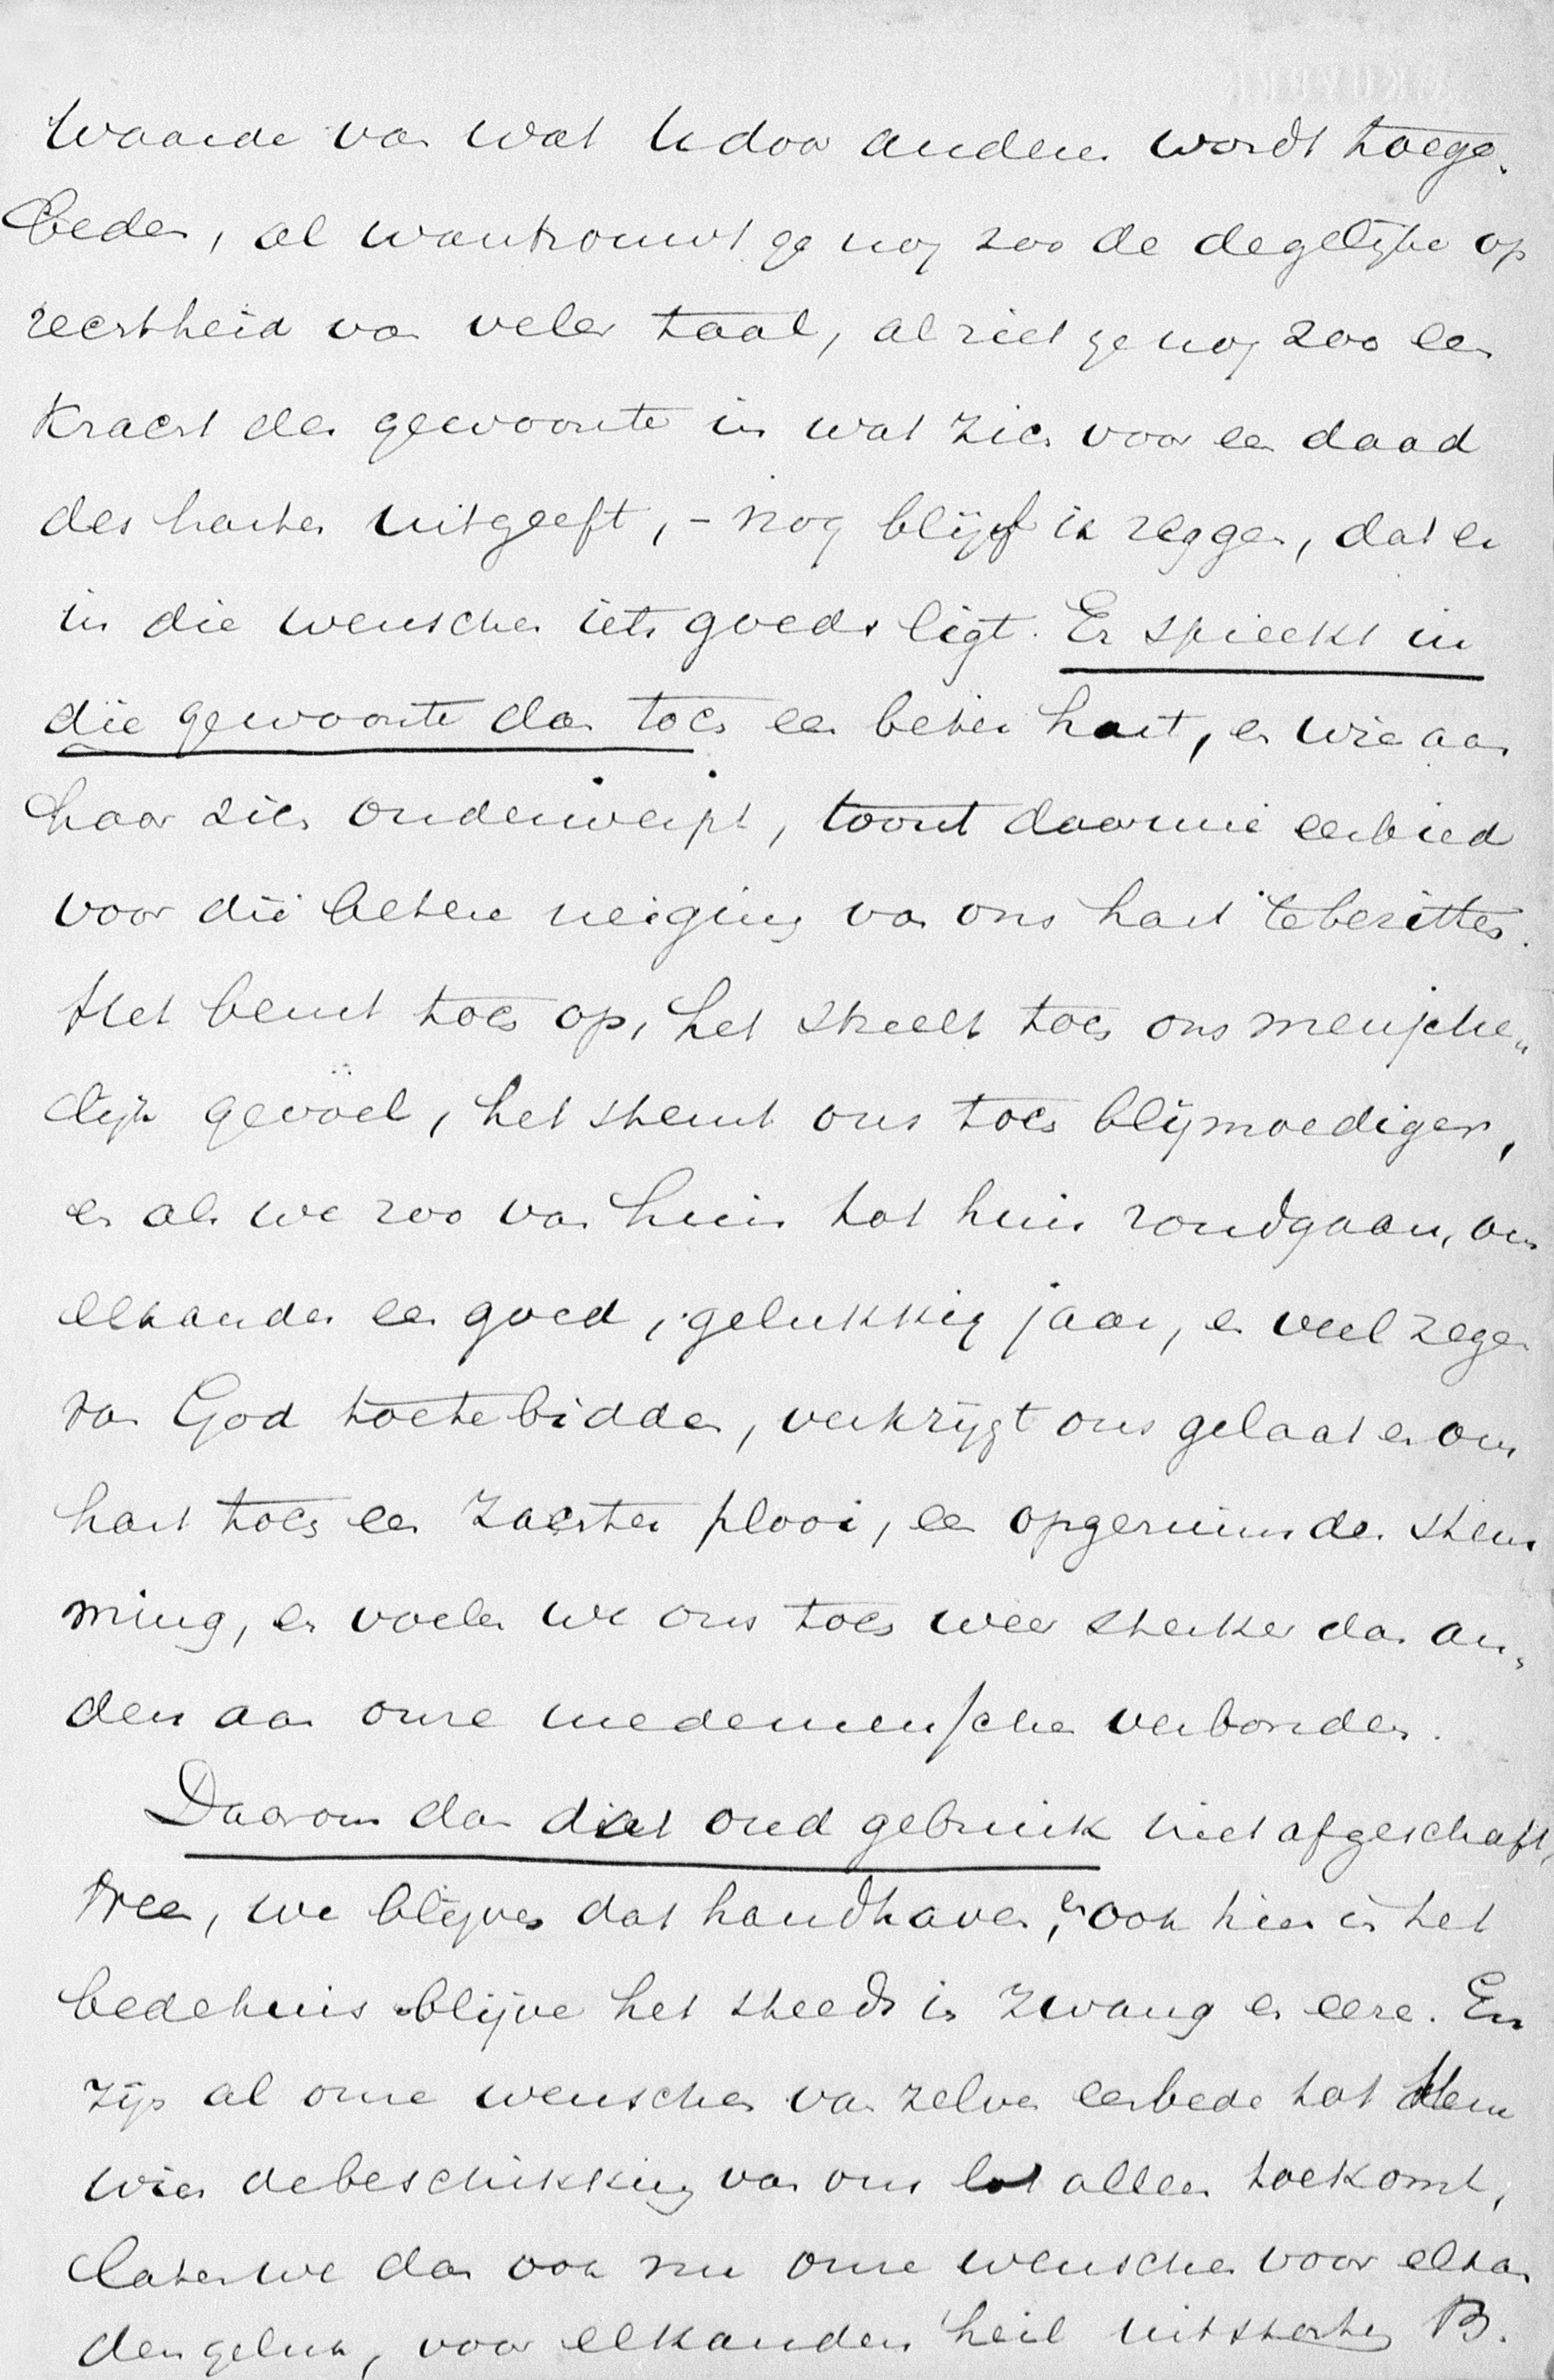 waarde van wat U door anderen wordt toege-
beden, al wantrouwt ge nog zoo de degelijke op
rechtheid van veler taal, al ziet ge nog zoo een
kracht der gewoonte in wat zich voor een daad
des harten uitgeeft, - nog blijf ik zeggen, dat er
in die wenschen iets goeds ligt. Er spreekt in
die gewoonte dan toch een beter hart, en wie aan
haar zich onderwerpt, toont daarmeê eerbied
voor die betere neiging van ons hart te bezitten.
Het beurt toch op, het streelt toch ons mensche-
lijk gevoel, het stemt ons toch blijmoediger,
en als we zoo van huis tot huis rondgaan, om
elkander een goed, gelukkig jaar, en veel zegen
van God toe te bidden, verkrijgt ons gelaat en ons
hart toch een zachter plooi, een opgeruimder stem
ming, en voelen we ons toch weer sterker dan an-
ders aan onze medemenschen verbonden.
Daarom dan dat oud gebruik niet afgeschaft,
Nee, we blijven dat handhaven, en ook hier in het
bedehuis blijve het steeds in zwang en eere. En
zijn al onze wenschen van zelven eerbede tot Hem
wien de beschikking van ons lot alleen toekomt,
laten we dan ook nu onze wenschen voor elkan
ders geluk, voor elkanders heil uitstorten B.